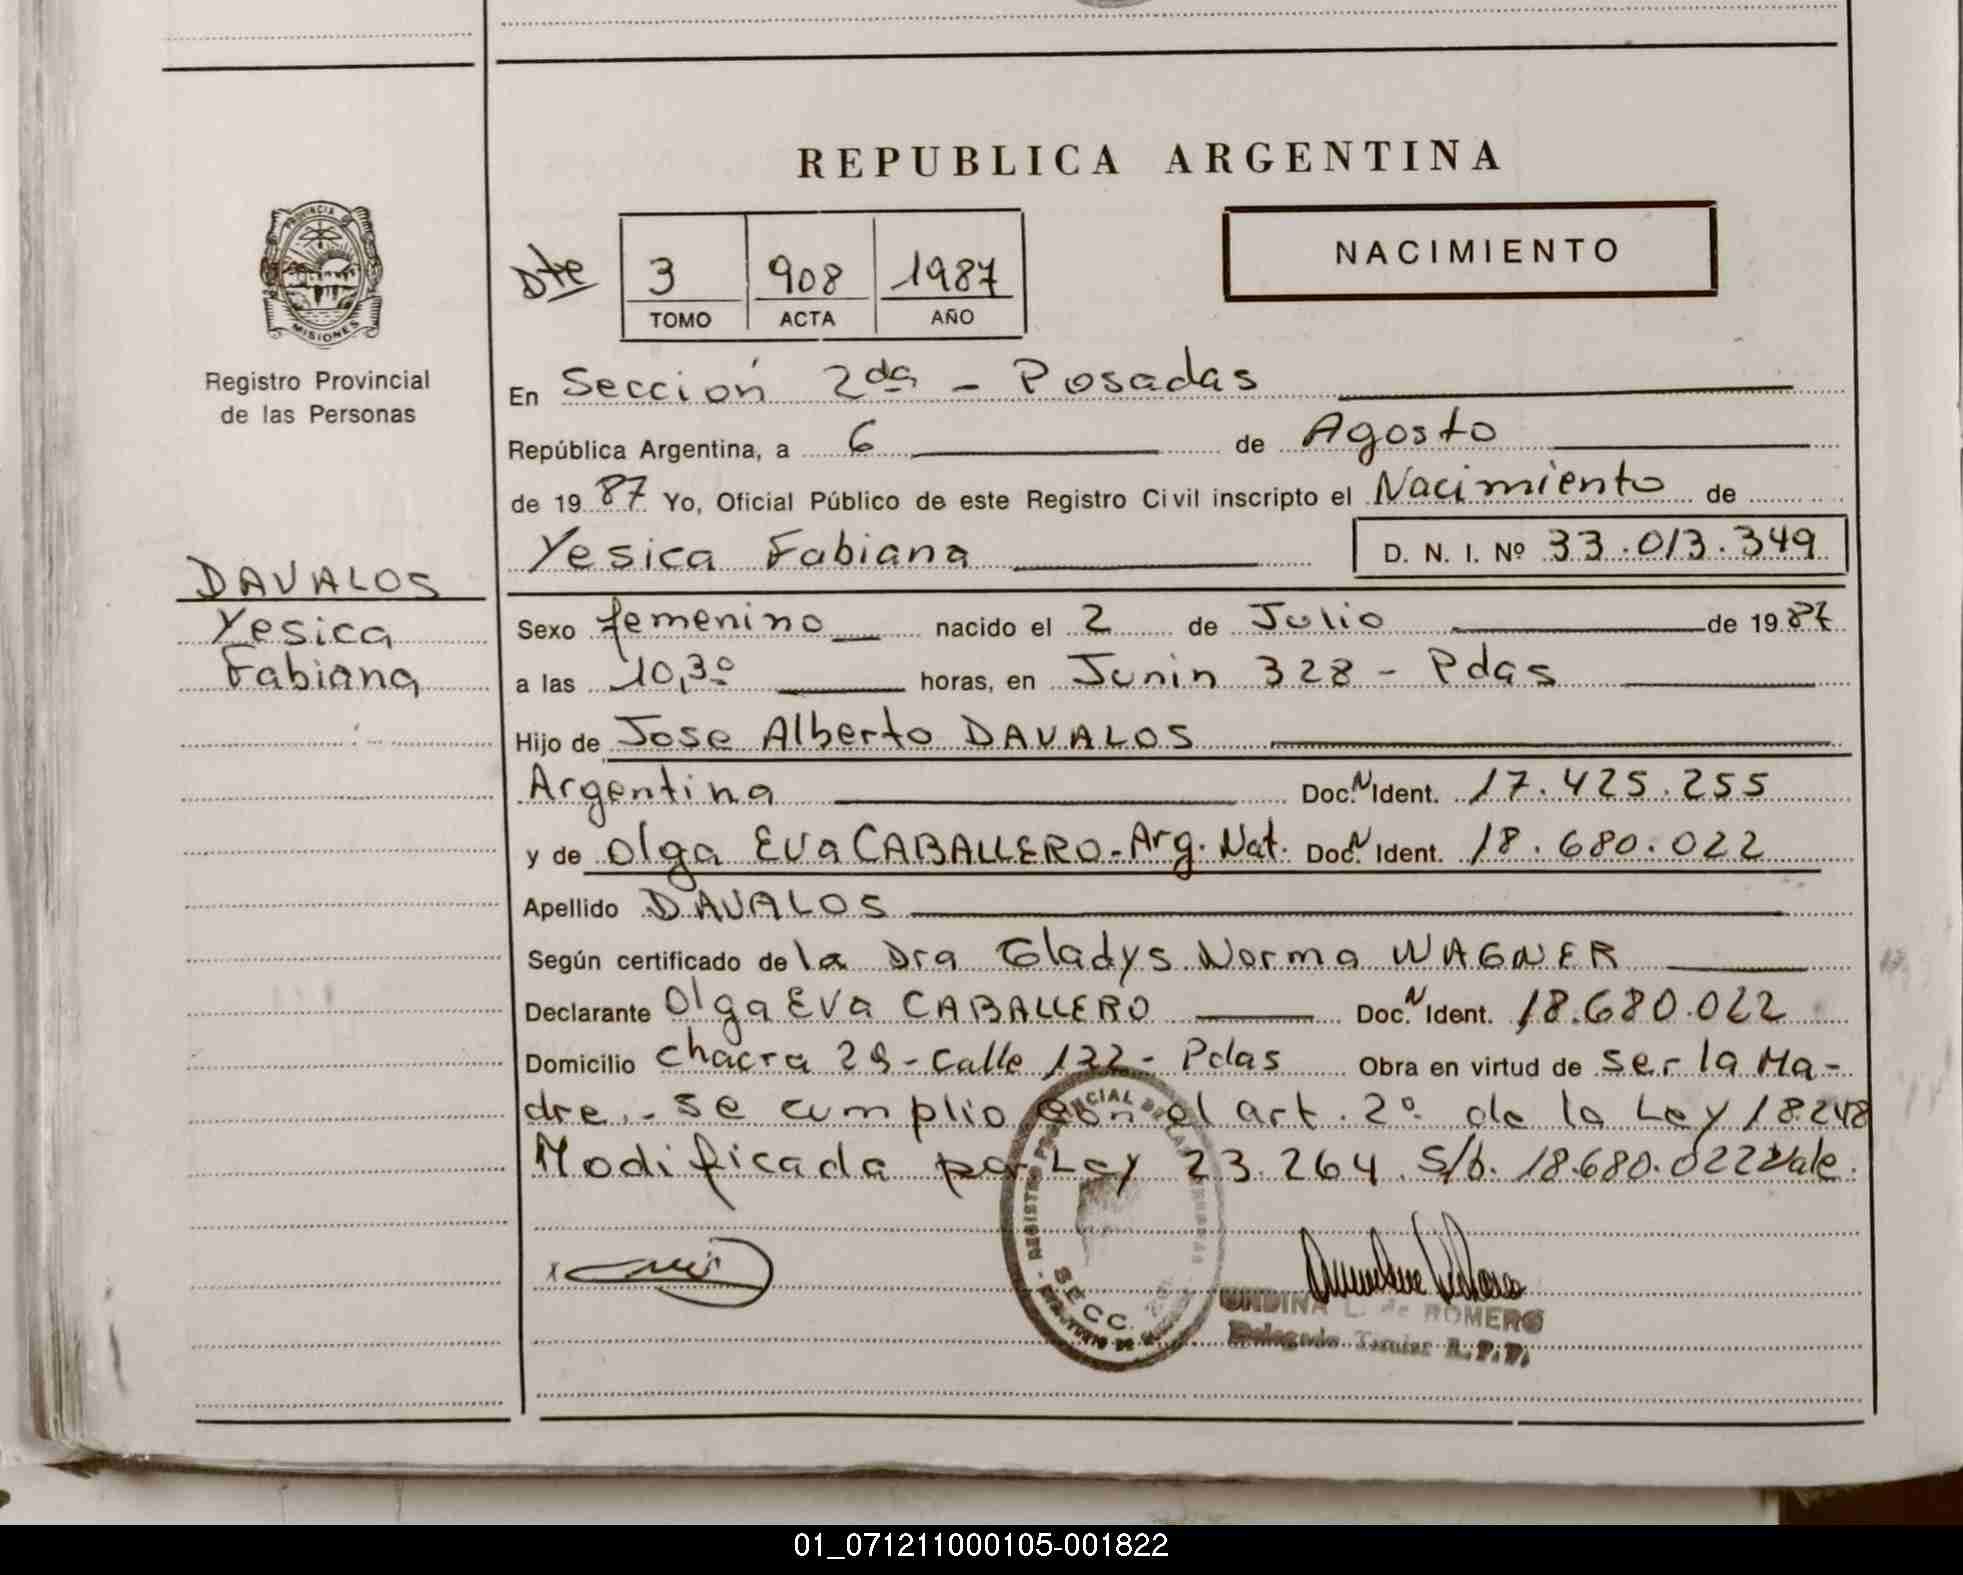 REPUBLICA ARGENTINA
PROVINCIA DE
MISIONES
Registro Provincial
de las Personas
Dte
3 908 1987
TOMO ACTA AÑO
NACIMIENTO
En Sección 2da - Posadas
República Argentina, a 6 de Agosto
de 1987 Yo, Oficial Público de este Registro Civil inscripto el Nacimiento de
Yesica Fabiana D. N. I. Nº 33.013.349
DAVALOS
Yesica
Fabiana
Sexo femenino nacido el 2 de Julio de 1987
a las 10,30 horas, en Junin 328 - Pdas
Hijo de Jose Alberto DAVALOS
Argentina Doc. N Ident. 17.425.255
y de Olga Eva CABALLERO - Arg. Nat. Doc. N Ident. 18.680.022
Apellido DAVALOS
Según certificado de la Dra Gladys Norma WAGNER
Declarante Olga Eva CABALLERO Doc. N Ident. 18.680.022
Domicilio Chacra 29 - Calle 122 - Pdas Obra en virtud de ser la Ma-
dre.- Se cumplio con el art. 2º de la Ley 18248
Modificada por Ley 23.264. S/b. 18.680.022 Vale.
x
REGISTRO PROVINCIAL DE LAS PERSONAS
SECC.
UNDINA L. de ROMERO
Delegado Titular R.P.P.
01_071211000105-001822